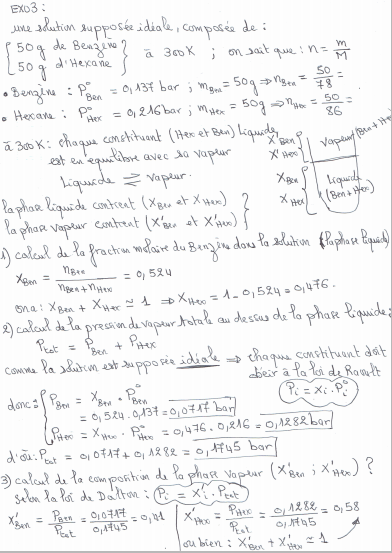 EXO3 :
une solution supposée idéale, composée de :
{ 50 g de Benzène
50 g d'Hexane } à 300K ; on sait que : n = m/M
• Benzène : P°Ben = 0,137 bar ; mBen = 50g ⇒ nBen = 50/78 =
• Hexane : P°Hex = 0,216 bar ; mHex = 50g ⇒ nHex = 50/86 =
à 300K : chaque constituant (Hex et Ben) liquide
est en equilibre avec sa vapeur
Liquide ⇌ Vapeur.
X'Ben
X'Hex
Vapeur (Ben + Hex)
XBen
XHex
Liquide
(Ben + Hex)
la phase liquide contient (XBen et XHex)
la phase vapeur contient (X'Ben et X'Hex) }
1) calcul de la fraction molaire du Benzène dans la solution (la phase liquide)
XBen = nBen/(nBen + nHex) = 0,524
on a : XBen + XHex ≃ 1 ⇒ XHex = 1 - 0,524 = 0,476.
2) calcul de la pression de vapeur totale au dessus de la phase liquide :
Ptot = PBen + PHex
comme la solution est supposée idéale ⇒ chaque constituant doit
obéir à la loi de Raoult
Pi = xi . Pi°
donc : { PBen = XBen . P°Ben
= 0,524 . 0,137 = 0,0717 bar
PHex = XHex . P°Hex = 0,476 . 0,216 = 0,1282 bar
d'où : Ptot = 0,0717 + 0,1282 = 0,1745 bar
3) calcul de la composition de la phase vapeur (X'Ben ; X'Hex) ?
selon la loi de Dalton : Pi = X'i . Ptot
X'Ben = PBen/Ptot = 0,0717/0,1745 = 0,41
X'Hex = PHex/Ptot = 0,1282/0,1745 = 0,58
ou bien : X'Ben + X'Hex ≃ 1